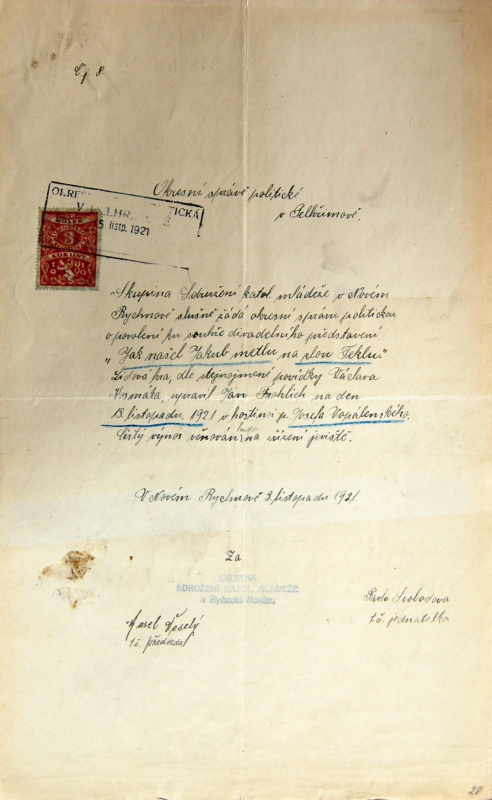 Č.j. 8.
Okresní správě politické
v Pelhřimově.
OKRES POLITICKÁ
V PELHŘIMOVĚ
5 listp. 1921
KOLEK
3
KORUNY
1919
Skupina Sdružení katol. mládeže v Novém
Rychnově slušně žádá okresní správu politickou
o povolení ku souboře divadelního představení
„Jak našel Jakub metlu na zlou Teklu."
Lidová hra, dle stejnojmené povídky Václava
Kosmáka, upravil Jan Fröhlich na den
13. listopadu 1921 v hostinci p. Josefa Vopálenského.
Čistý výnos věnován bude na zřízení jeviště.
V Novém Rychnově 3. listopadu 1921.
Za
SKUPINA
SDRUŽENÍ KATOL. MLÁDEŽE
v Rychnově Novém
Karel Veselý
t.č. předseda
Pavla Svobodova
t.č. jednatelka
28